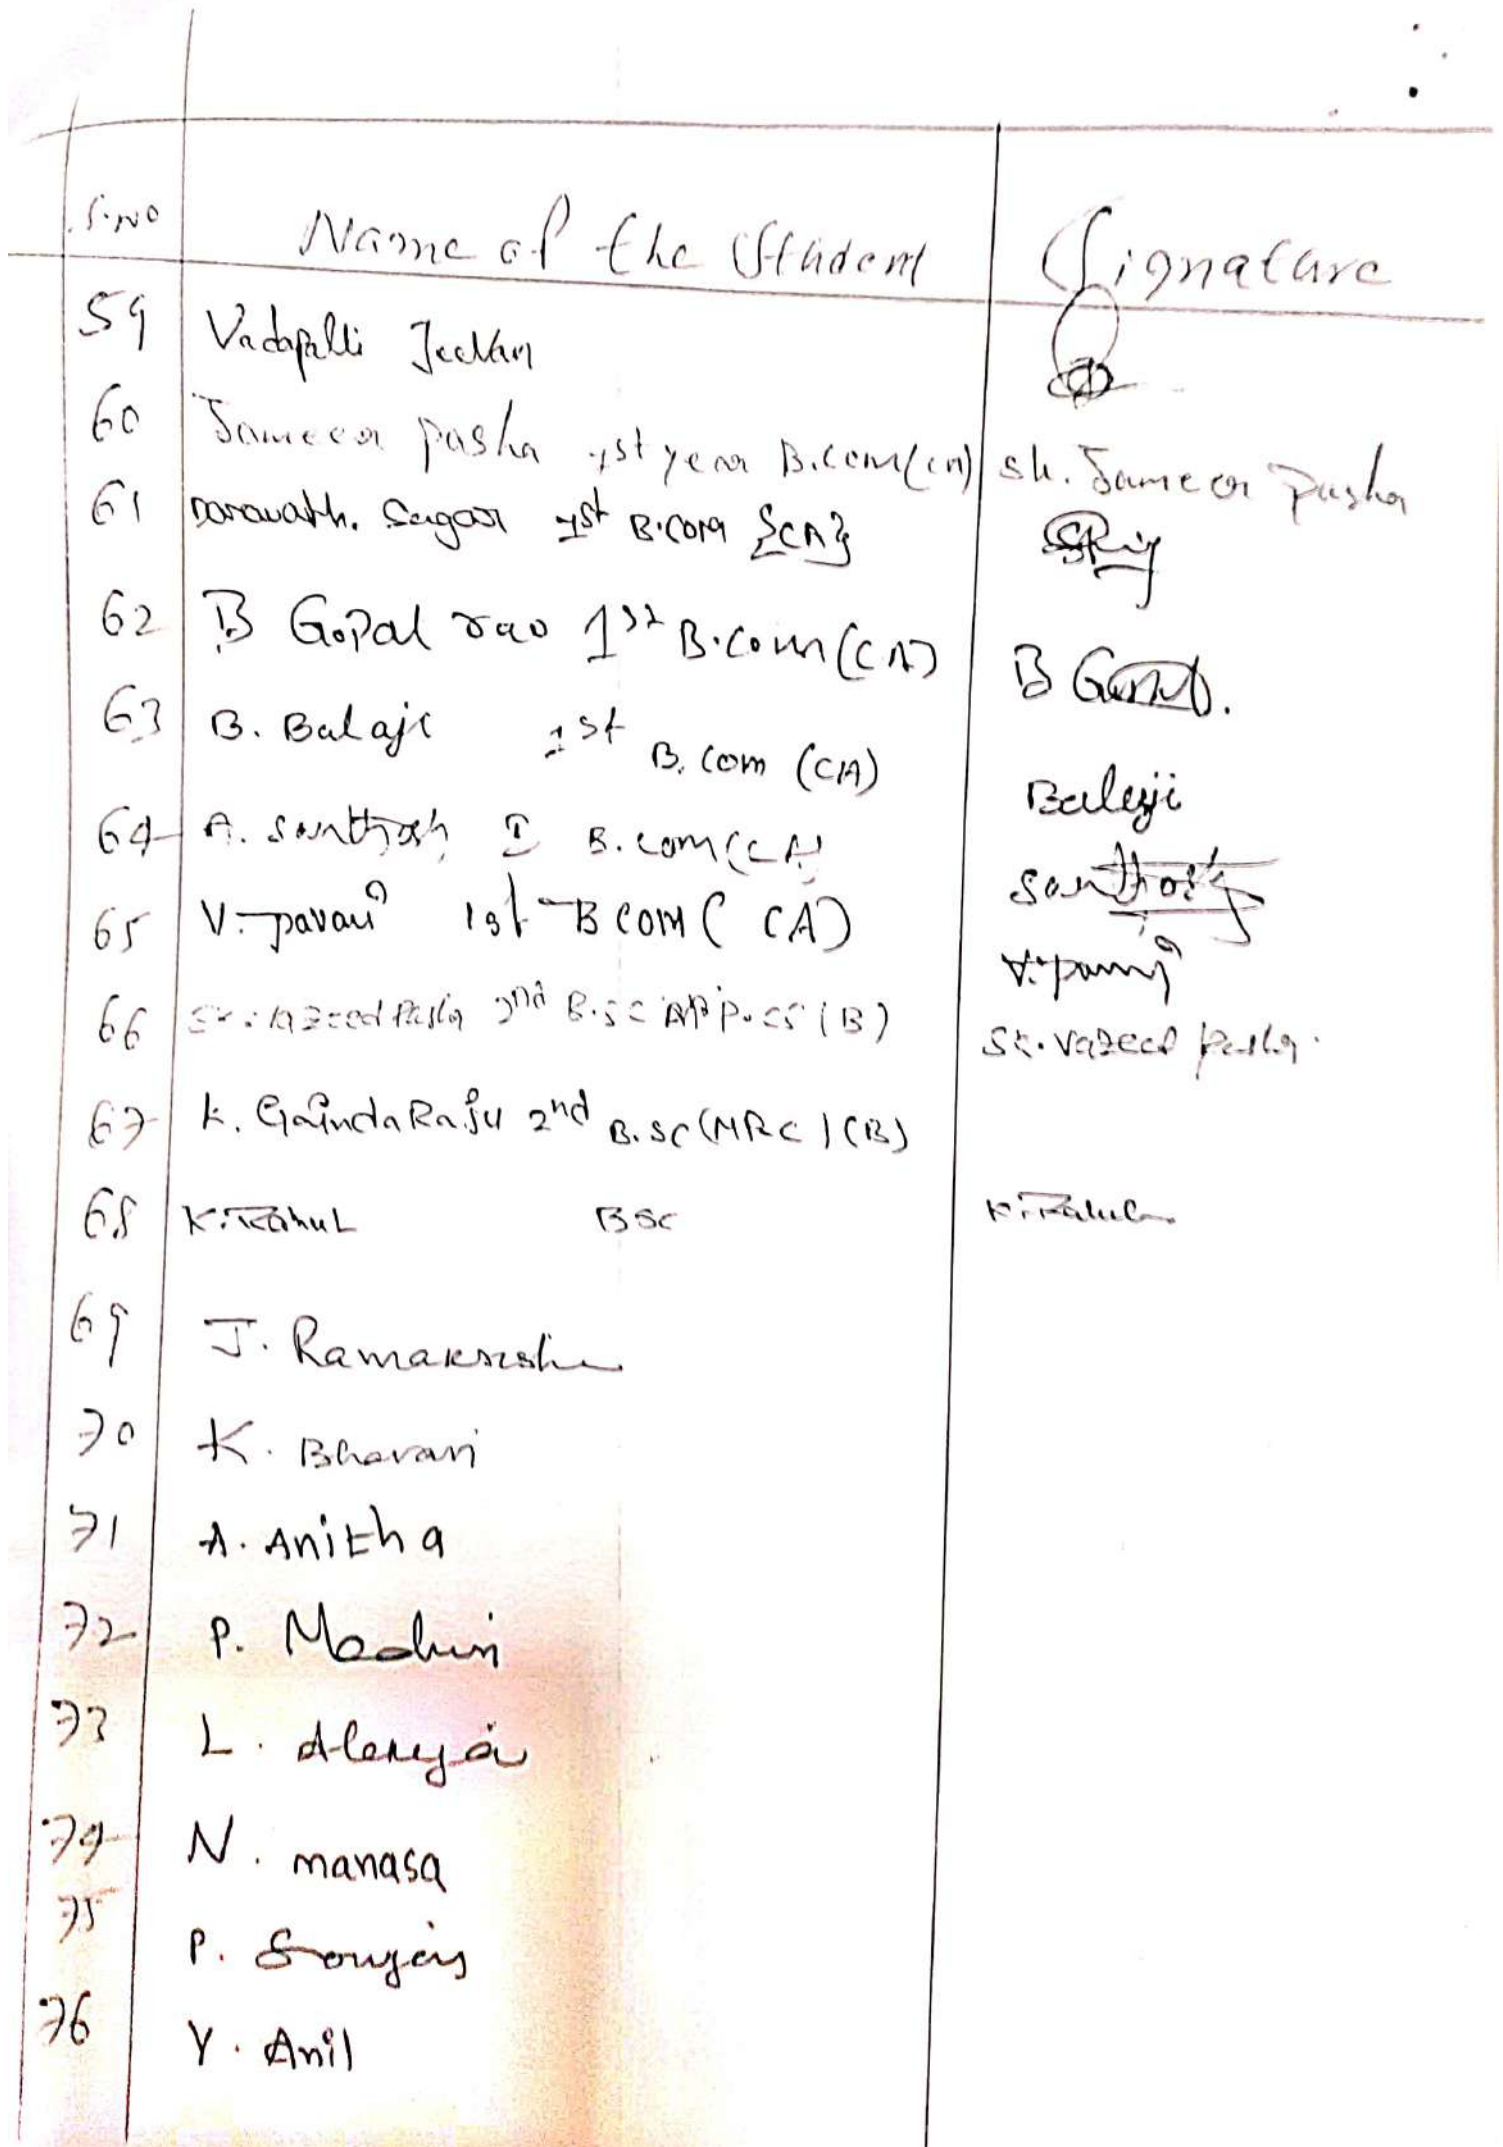 S.NO Name of the Student Signature
59 Vadapalli Jeevan
60 Sameer pasha 1st year B.com(CA) sk. Sameer Pasha
61 Sagar 1st B.com {CA}
62 B Gopal rao 1st B.com (CA) B
63 B. Balaji 1st B. Com (CA) Balaji
64 A. Santhosh I B.com(CA) Santhosh
65 V. pavani 1st B COM ( CA) V.
66 Sk. Vazeed Pasha 2nd B.SC APP.CS (B) Sk. Vazeed Pasha.
67 K. 2nd B.SC (MRC) (B)
68 K. Rahul BSC K. Rahul
69 J. Ramakrishna
70 K. Bhavani
71 A. Anitha
72 P. Madhuri
73 L. Alekya
74 N. manasa
75 P.
76 Y. Anil